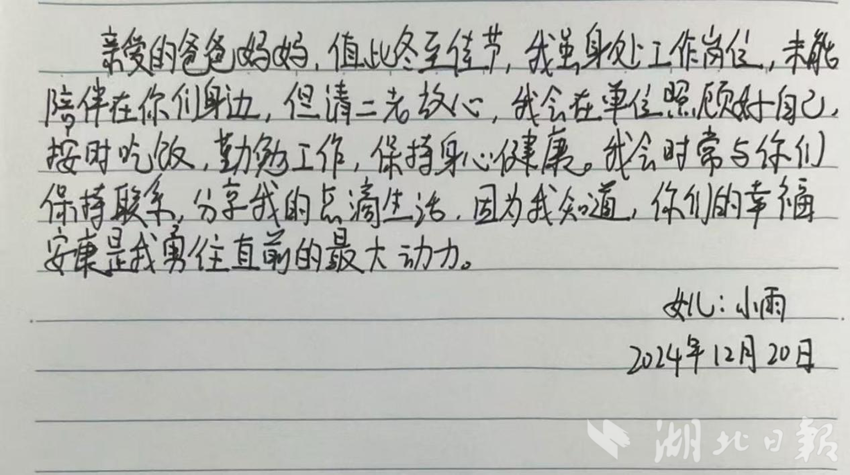 亲爱的爸爸妈妈，值此冬至佳节，我虽身处工作岗位，未能
陪伴在你们身边，但请二老放心，我会在单位照顾好自己，
按时吃饭，勤勉工作，保持身心健康。我会时常与你们
保持联系，分享我的点滴生活，因为我知道，你们的幸福
安康是我勇往直前的最大动力。
女儿：小雨
2024年12月20日
湖北日报